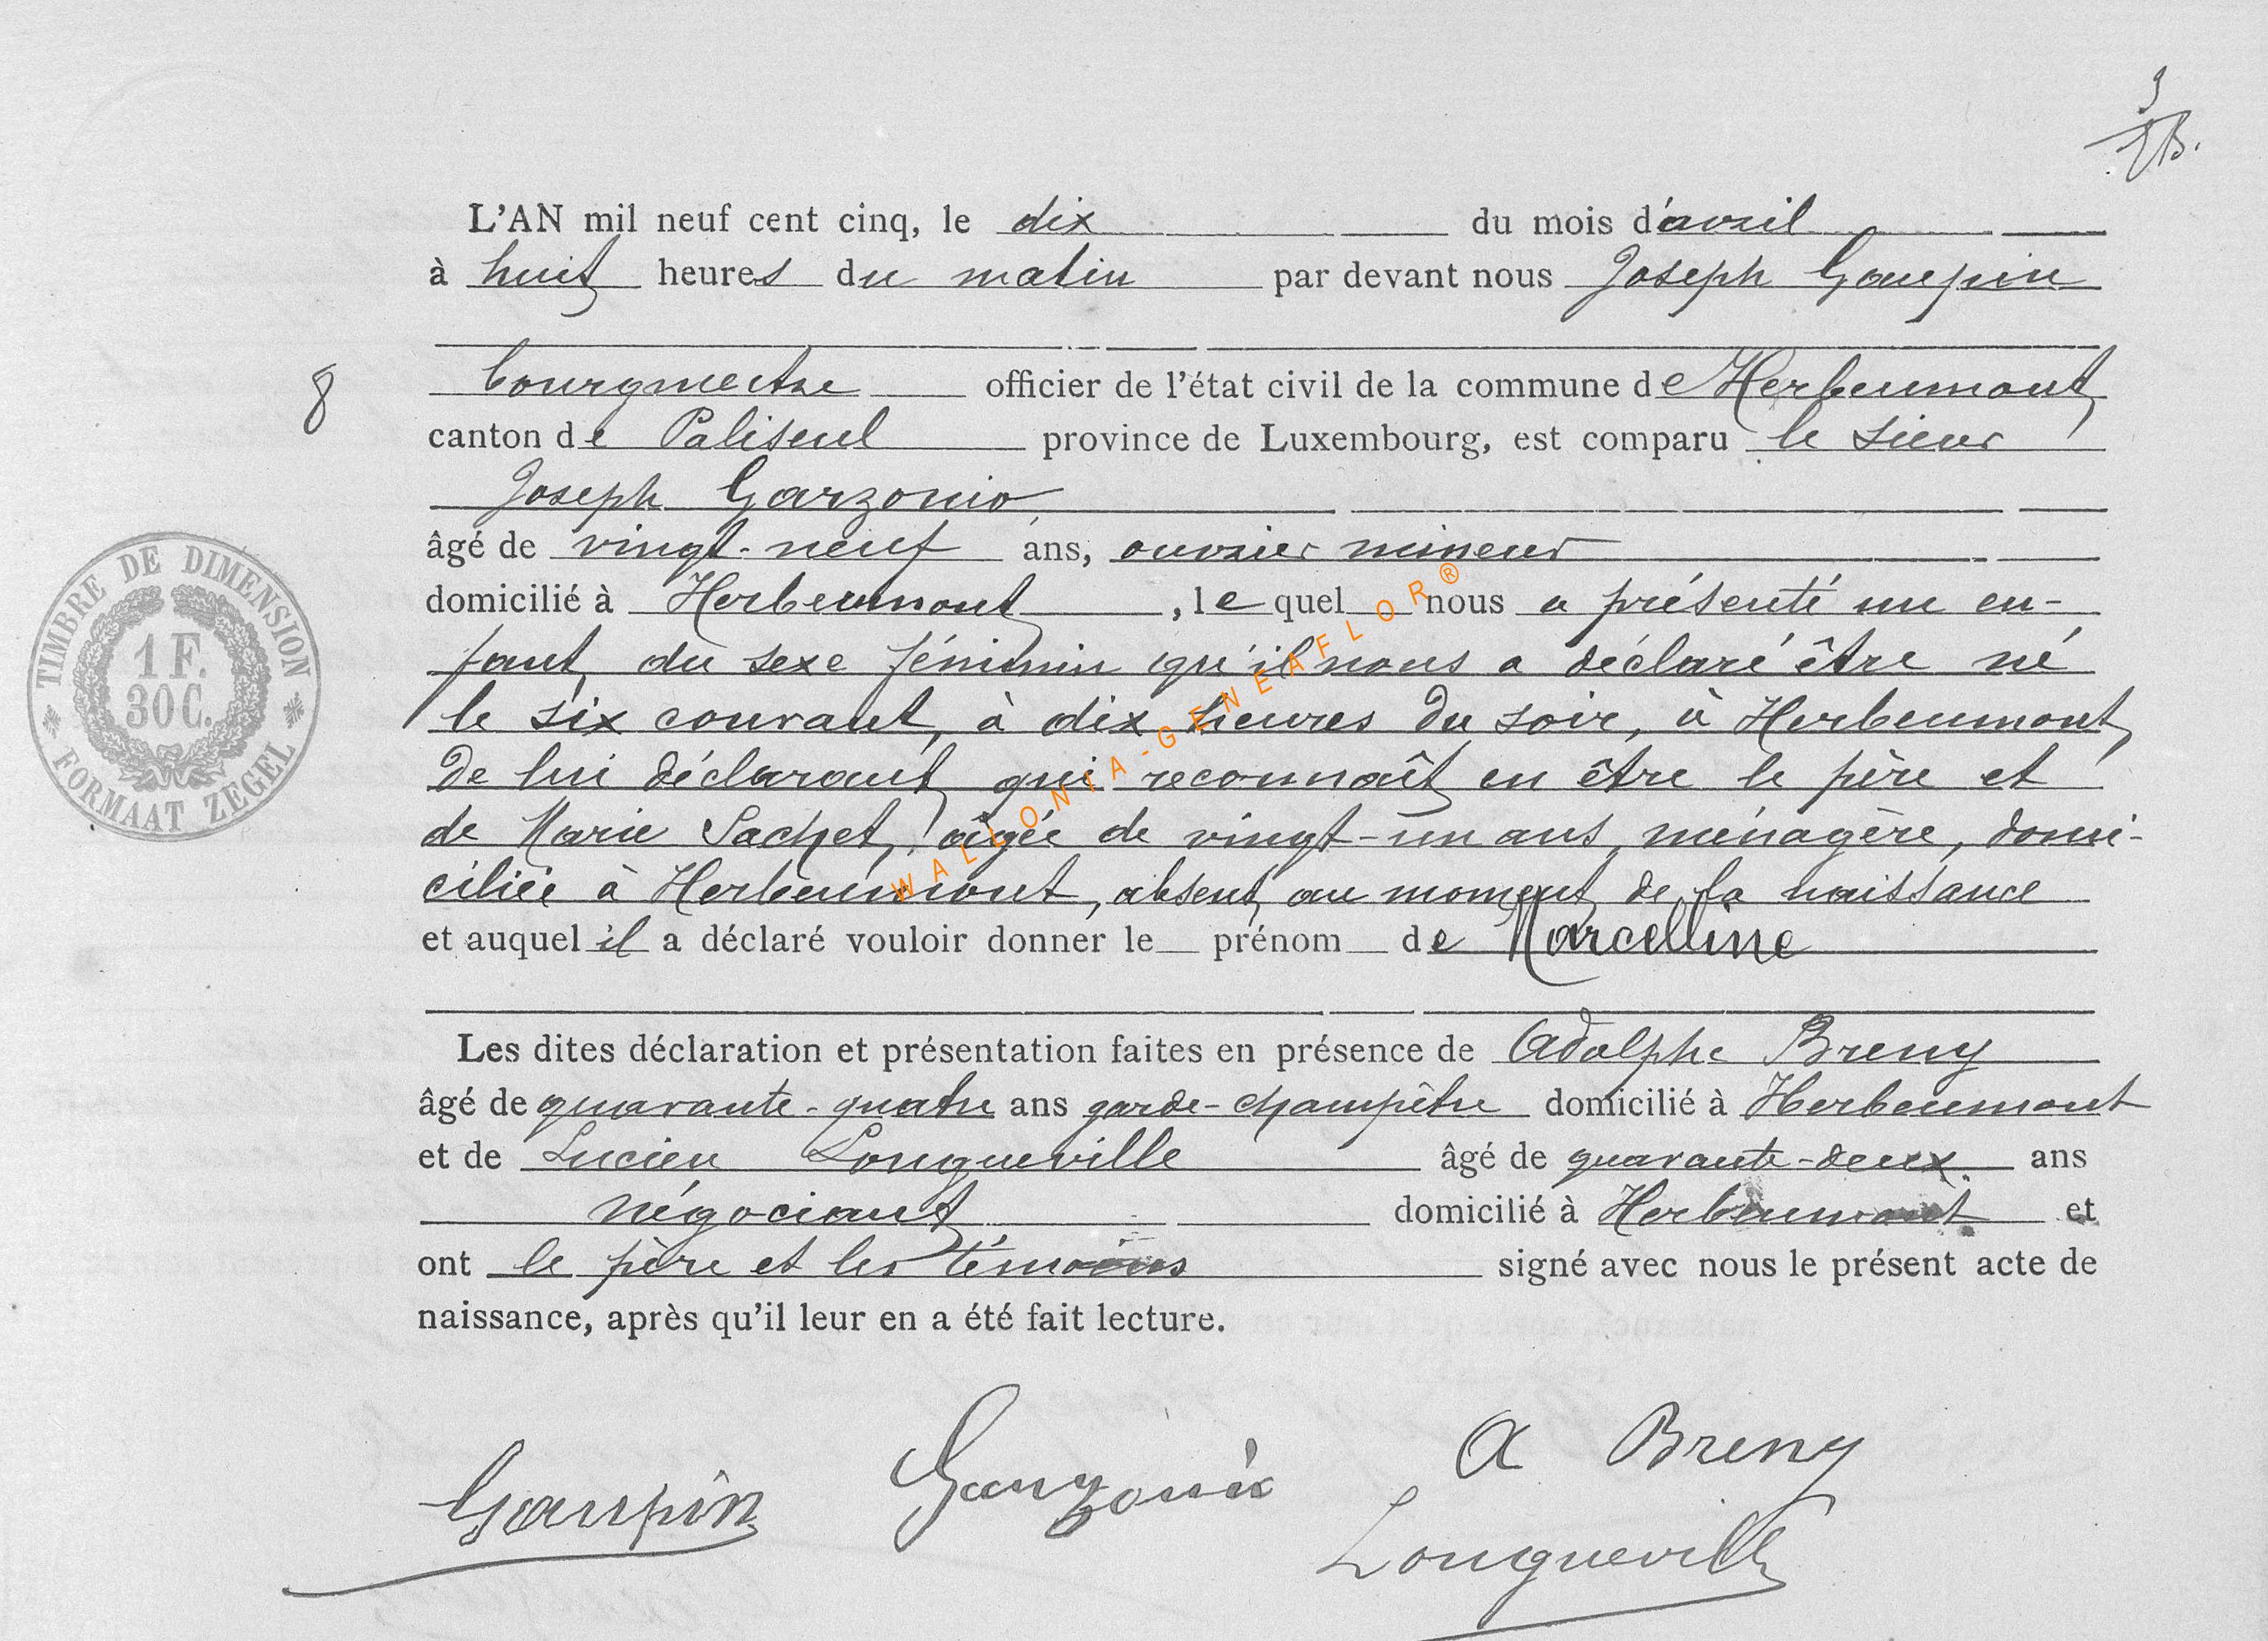 3
JB.
L'AN mil neuf cent cinq, le dix du mois d'avril
à huit heures du matin par devant nous Joseph Gaupin
8
bourgmestre officier de l'état civil de la commune de Herbeumont
canton de Paliseul province de Luxembourg, est comparu le sieur
Joseph Garzonio,
âgé de vingt-neuf ans, ouvrier mineur
domicilié à Herbeumont, le quel nous a présenté un en-
fant du sexe féminin qu'il nous a déclaré être né
le six courant, à dix heures du soir, à Herbeumont,
de lui déclarant qui reconnaît en être le père et
de Marie Sachet, âgée de vingt-un ans, ménagère, domi-
ciliée à Herbeumont, absent au moment de la naissance
et auquel il a déclaré vouloir donner le prénom de Marcelline
Les dites déclaration et présentation faites en présence de Adolphe Breny
âgé de quarante-quatre ans garde-champêtre domicilié à Herbeumont
et de Lucien Longueville âgé de quarante-deux ans
négociant domicilié à Herbeumont et
ont le père et les témoins signé avec nous le présent acte de
naissance, après qu'il leur en a été fait lecture.
TIMBRE DE DIMENSION
1 F.
30 C.
FORMAAT ZEGEL
WALLONIA-GENEAFLOR®
Gaupin Garzonio A Breny
Longueville